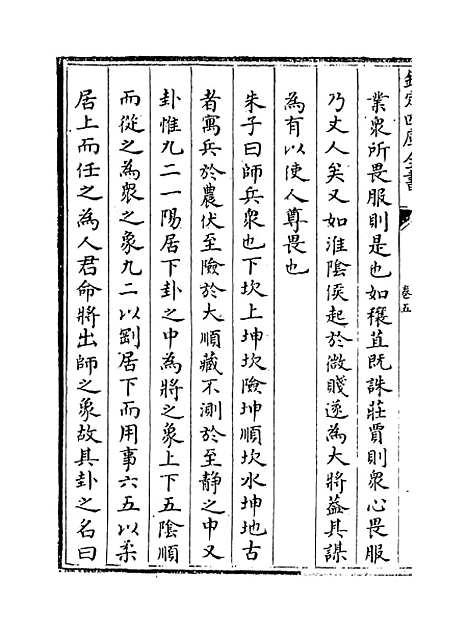 欽定四庫全書
卷五
業衆所畏服則是也如穰苴既誅莊賈則衆心畏服
乃丈人矣又如淮陰侯起於微賤遂為大將蓋其謀
為有以使人尊畏也
朱子曰師兵衆也下坎上坤坎險坤順坎水坤地古
者寓兵於農伏至險於大順藏不測於至静之中又
卦惟九二一陽居下卦之中為將之象上下五陰順
而從之為衆之象九二以剛居下而用事六五以柔
居上而任之為人君命將出師之象故其卦之名曰